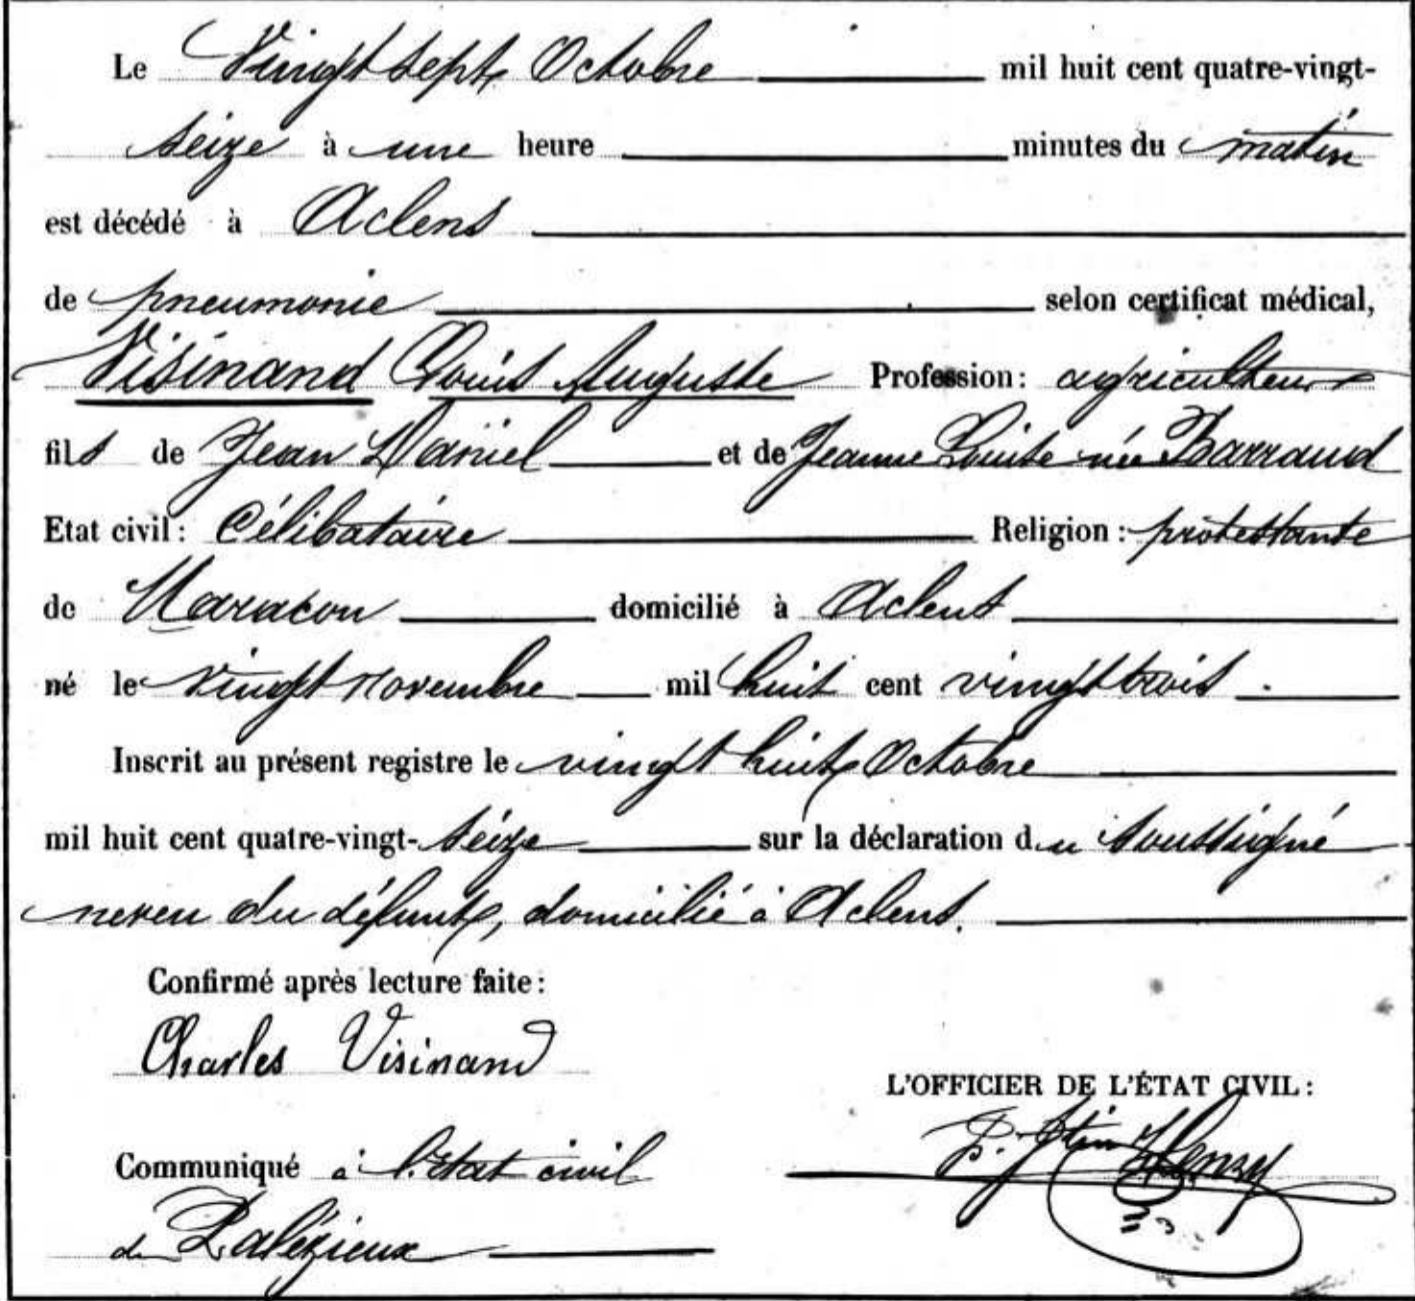 Le Vingt sept Octobre mil huit cent quatre-vingt-
seize à une heure minutes du matin
est décédé à Aclens
de pneumonie selon certificat médical,
Visinand Louis Auguste Profession: agriculteur
fils de Jean Daniel et de Jeanne Louise née Barraud
Etat civil: Célibataire Religion: protestante
de Maracon domicilié à Aclens
né le vingt novembre mil huit cent vingt trois
Inscrit au présent registre le vingt huit Octobre
mil huit cent quatre-vingt-seize sur la déclaration du soussigné
neveu du défunt, domicilié à Aclens.
Confirmé après lecture faite:
Charles Visinand
L'OFFICIER DE L'ÉTAT CIVIL:
Communiqué à l'Etat civil
de Palézieux